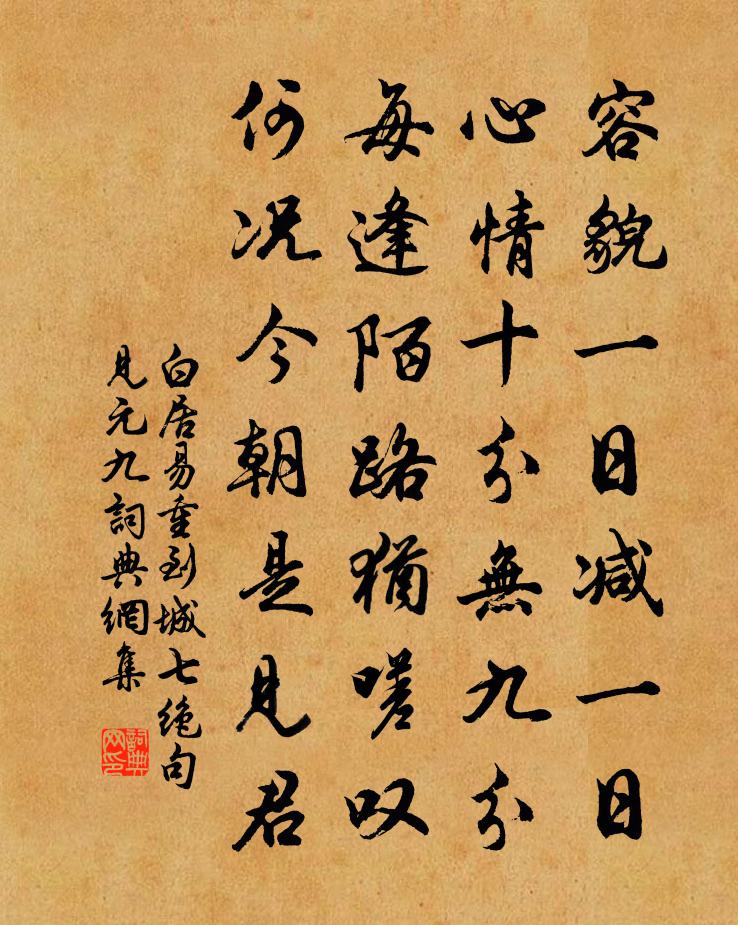 容貌一日减一日
心情十分無九分
每逢陌路猶嗟叹
何况今朝是見君
白居易重到城七绝句
見元九詞典網集
詞典网印